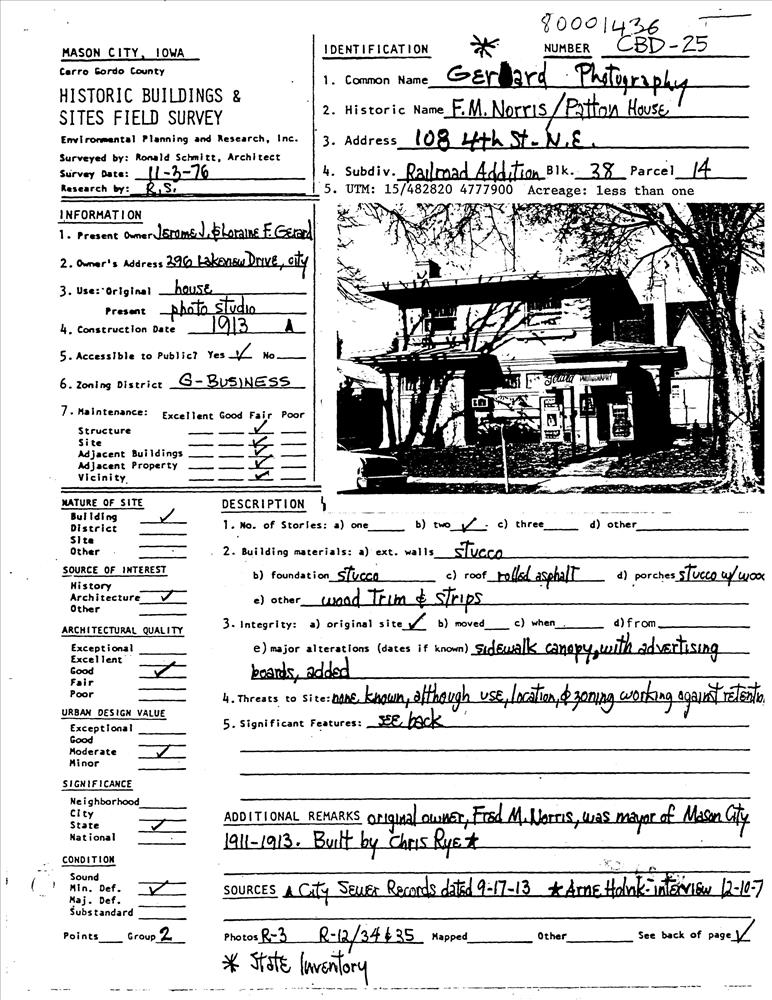 80001436
MASON CITY, IOWA
Cerro Gordo County
HISTORIC BUILDINGS &
SITES FIELD SURVEY
Environmental Planning and Research, Inc.
Surveyed by: Ronald Schmitt, Architect
Survey Date: 11-3-76
Research by: R.S.
IDENTIFICATION * NUMBER CBD-25
1. Common Name Gerard Photography
2. Historic Name F.M. Norris/Patton House
3. Address 108 4th St. N.E.
4. Subdiv. Railroad Addition Blk. 38 Parcel 14
5. UTM: 15/482820 4777900 Acreage: less than one
INFORMATION
1. Present Owner Jerome J. & Loraine F. Gerard
2. Owner's Address 296 Lakeview Drive, city
3. Use: Original house
Present photo studio
4. Construction Date 1913 A
5. Accessible to Public? Yes ✓ No
6. Zoning District G-BUSINESS
7. Maintenance: Excellent Good Fair Poor
Structure ✓
Site ✓
Adjacent Buildings ✓
Adjacent Property ✓
Vicinity ✓
Gerard PHOTOGRAPHY
NATURE OF SITE
Building ✓
District
Site
Other
SOURCE OF INTEREST
History
Architecture ✓
Other
ARCHITECTURAL QUALITY
Exceptional
Excellent
Good ✓
Fair
Poor
URBAN DESIGN VALUE
Exceptional
Good
Moderate ✓
Minor
SIGNIFICANCE
Neighborhood
City
State ✓
National
CONDITION
Sound
Min. Def. ✓
Maj. Def.
Substandard
Points Group 2
DESCRIPTION
1. No. of Stories: a) one b) two ✓ c) three d) other
2. Building materials: a) ext. walls stucco
b) foundation stucco c) roof rolled asphalt d) porches stucco w/ woo
e) other wood trim & strips
3. Integrity: a) original site ✓ b) moved c) when d) from
e) major alterations (dates if known) sidewalk canopy, with advertising
boards, added
4. Threats to Site: none known, although use, location, & zoning working against retentio
5. Significant Features: SEE back
ADDITIONAL REMARKS original owner, Fred M. Norris, was mayor of Mason City
1911-1913. Built by Chris Rye ★
SOURCES A City Sewer Records dated 9-17-13 ★ Arne Holvik - interview 12-10-7
Photos R-3 R-12/34 & 35 Mapped Other See back of page ✓
* State Inventory